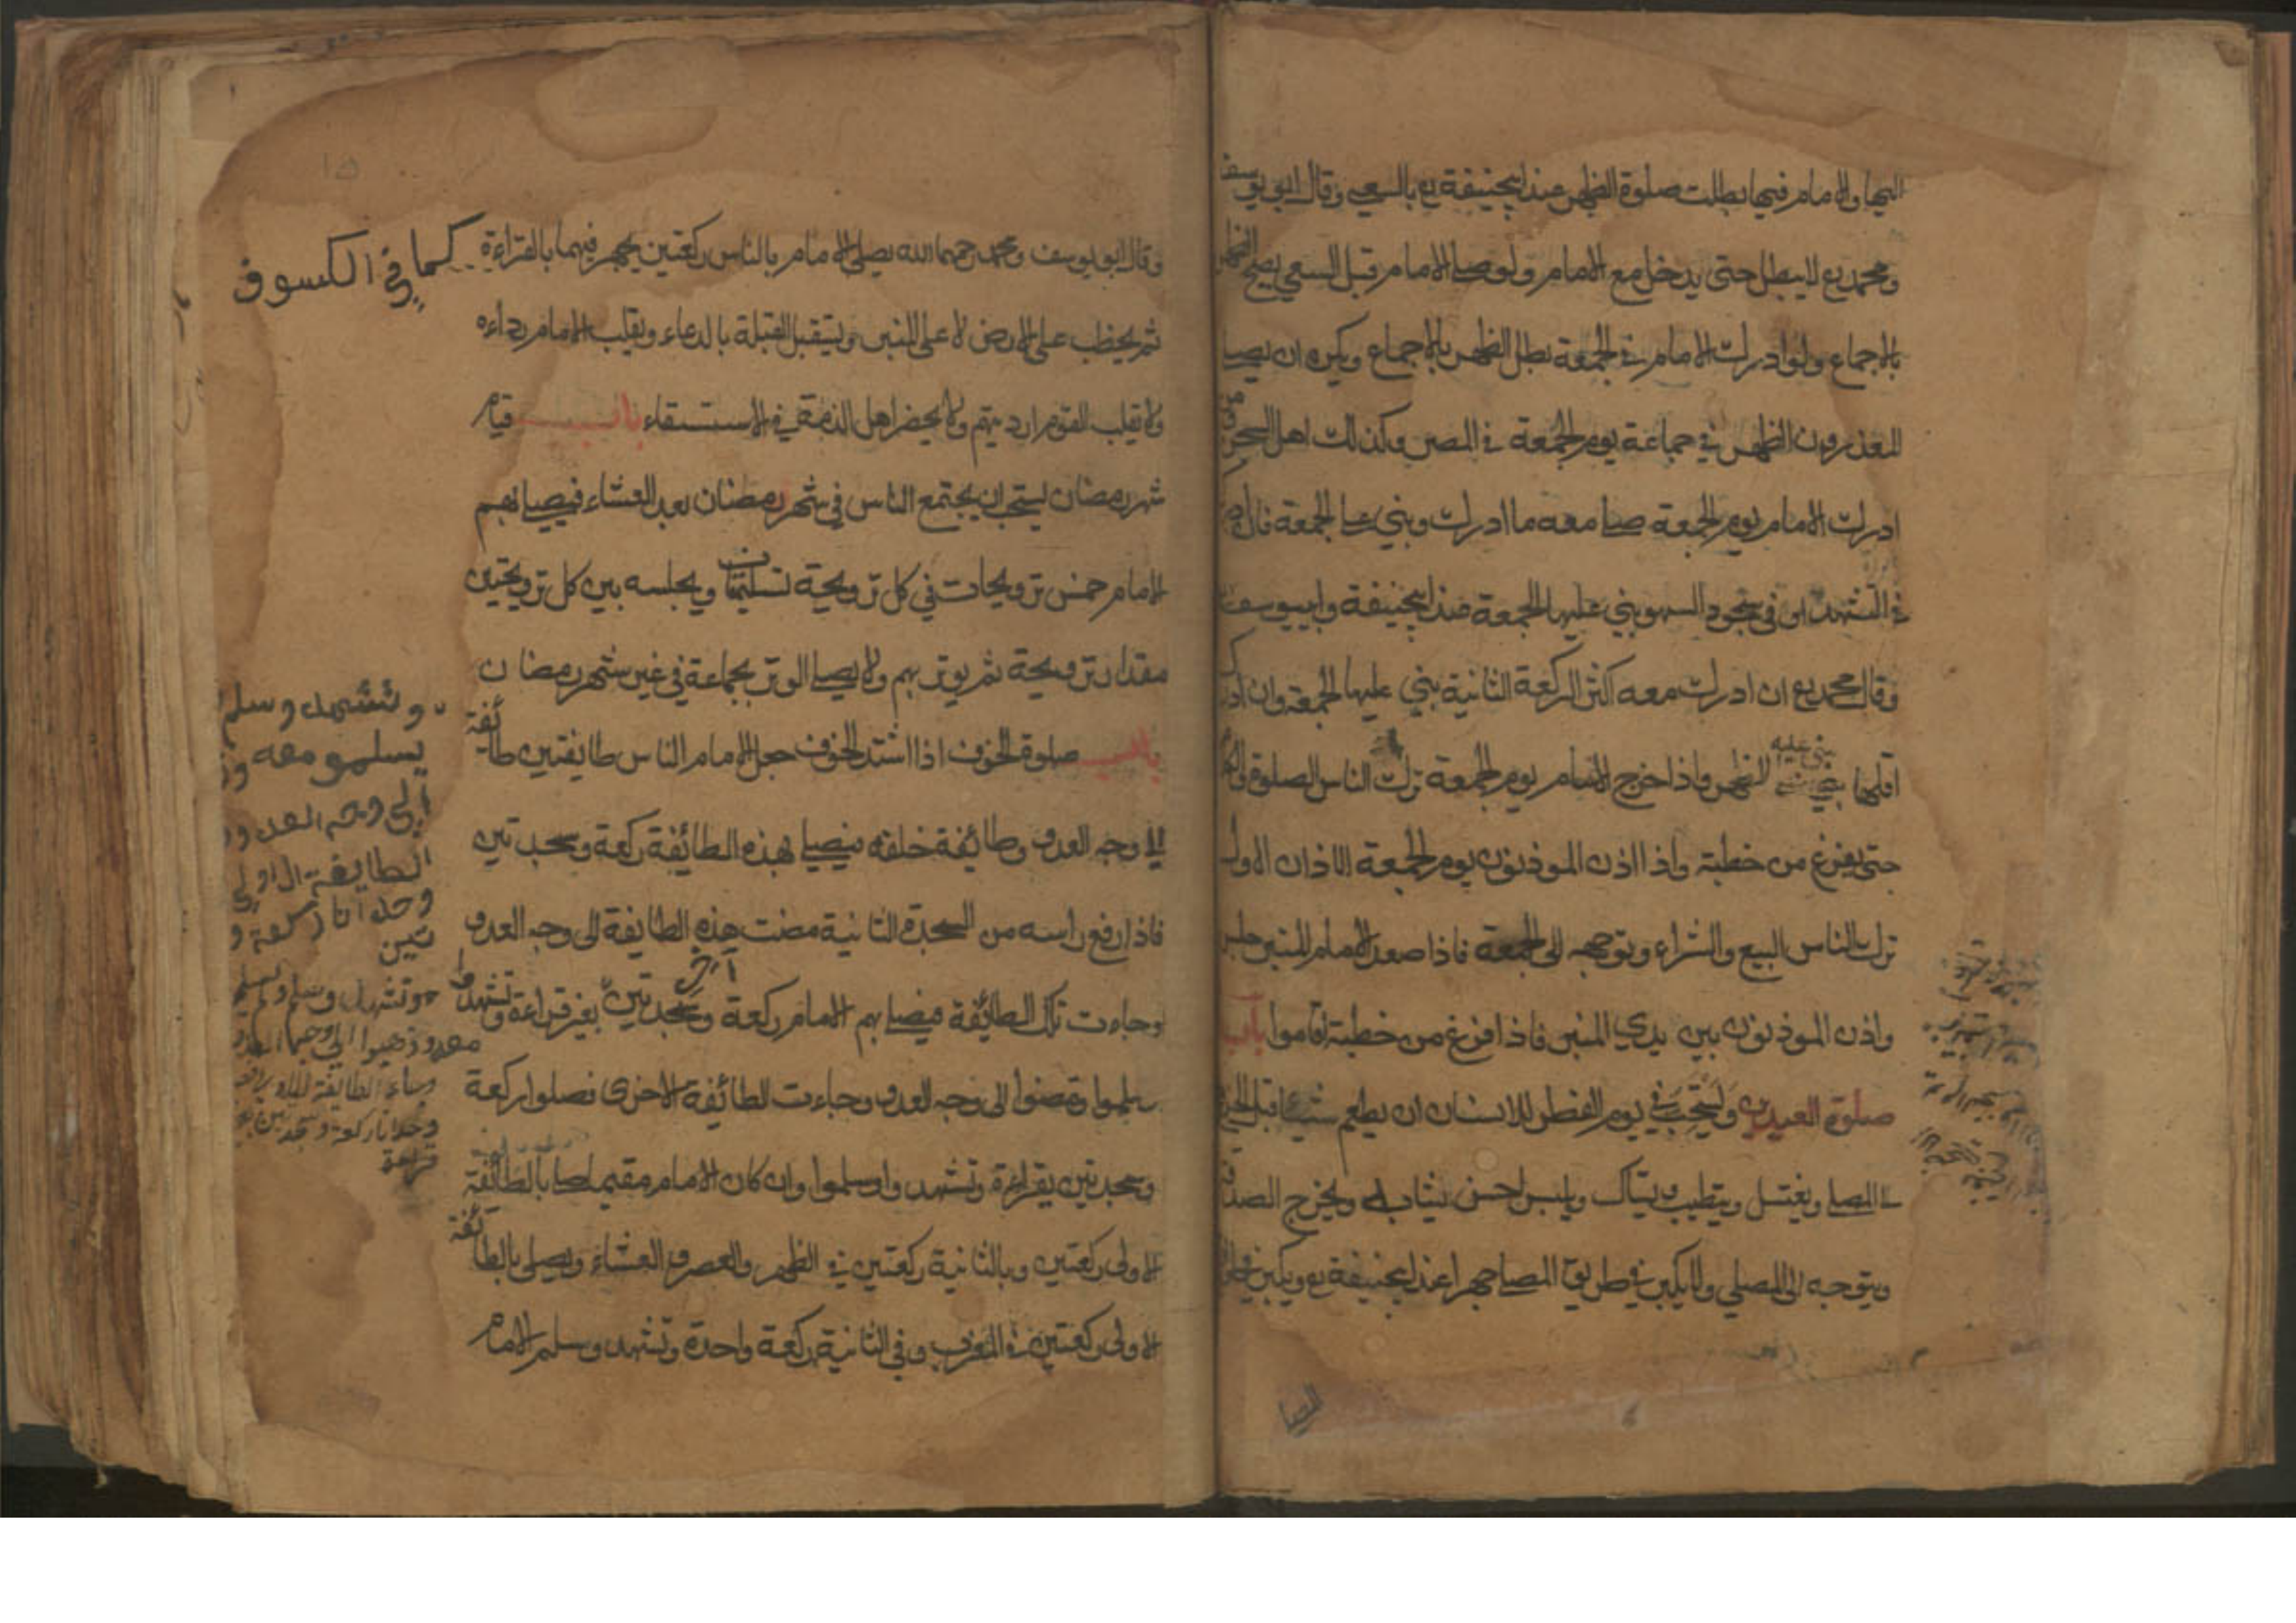 اليها والامام فيها بطلت صلوة الظهر عند ابيحنيفة رع بالسعي وقال ابو يوسف
ومحمد رع لا يبطل حتى يدخل مع الامام ولو صلى الامام قبل السعي يصح الظهر
بالاجماع ولو ادرك الامام في الجمعة بطل الظهر بالاجماع ويكره ان يصلى
المعذورون الظهر في جماعة يوم الجمعة في المصر وكذلك اهل السجن
ادرك الامام يوم الجمعة صلى معه ما ادرك وبني على الجمعة فان
في التشهد او في سجود السهو بني عليها الجمعة عند ابيحنيفة وابييوسف
وقال محمد رع ان ادرك معه اكثر الركعة الثانية بني عليها الجمعة وان ادرك
اقلها بني عليه الظهر واذا خرج الامام يوم الجمعة ترك الناس الصلوة
حتى يفرغ من خطبته واذا اذن الموذنون يوم الجمعة الاذان الاول
ترك الناس البيع والشراء وتوجهه الى الجمعة فاذا صعد الامام المنبر جلس
واذن الموذنون بين يدي المنبر فاذا فرغ من خطبته اقاموا باب
صلوة العيدين ويستحب في يوم الفطر للانسان ان يطعم شيئا قبل
المصلى ويغتسل ويتطيب ويستاك ويلبس احسن ثيابه ويخرج
ويتوجه الى المصلي ولا يكبر في طريق المصلى جهرا عند ابيحنيفة رع ويكبر في
١٥
وقال ابو يوسف ومحمد رحمهما الله يصلى الامام بالناس ركعتين يجهر فيهما بالقراءة كما في الكسوف
ثم يخطب على الارض لا على المنبر ويستقبل القبلة بالدعاء ويقلب الامام رداءه
ولا تقلب القوم ارديتهم ولا يحضر اهل الذمة في الاستسقاء باب قيام
شهر رمضان يستحب ان يجتمع الناس في شهر رمضان بعد العشاء فيصلى بهم
الامام خمس ترويحات في كل ترويحة تسليمتان ويجلسه بين كل ترويحتين
مقدار ترويحة ثم يوتر بهم ولا يصلى الوتر بجماعة في غير شهر رمضان
باب صلوة الخوف اذا اشتد الخوف جعل الامام الناس طايفتين طائفة
الى وجه العدو وطائيفة خلفه فيصلى بهذه الطائيفة ركعة وسجدتين
فاذا رفع راسه من السجدة الثانية مضت هذه الطايفة الى وجه العدو
وجاءت تلك الطائيفة فيصلى بهم الامام ركعة وسجدتين بغير قراءة وتشهد
سلموا ومضوا الى وجه العدو وجاءت الطائيفة الاخرى فصلوا ركعة
وسجدتين بقراءة وتشهدوا وسلموا وان كان الامام مقيما صلى بالطائفة
الاولى ركعتين وبالثانية ركعتين في الظهر والعصر والعشاء ويصلى بالطائفة
الاولى ركعتين في المغرب وفي الثانية ركعة واحدة وتشهد وسلم الامام
وتشهد وسلم
يسلمو معه و
الى وجه العدو و
الطايفة الاولى
وحدانا ركعة و
تين
وتشهد وسلم ولم يسلم
معه وذهبوا الى وجه العدو
وجاء الطايفة
وحدانا ركعة وسجدتين
قراءة